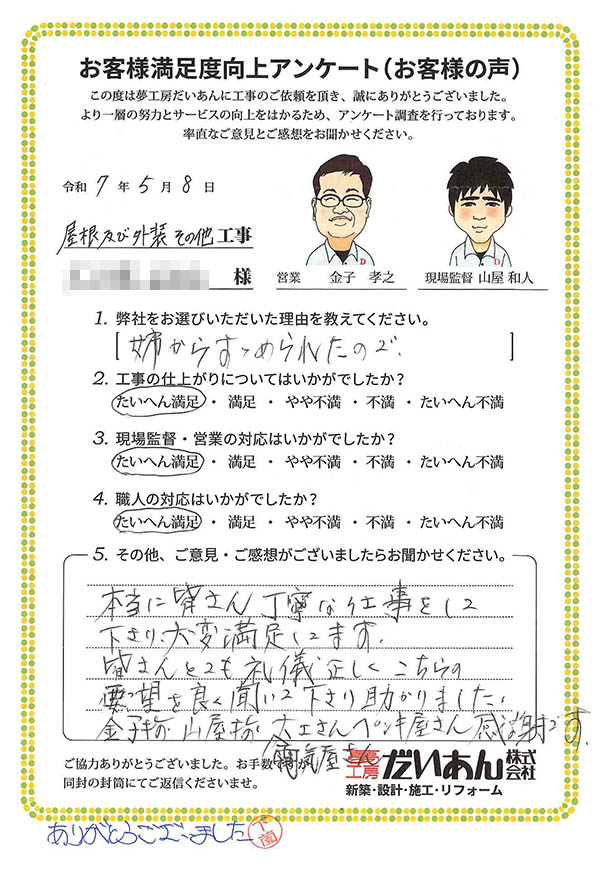 お客様満足度向上アンケート(お客様の声)
この度は夢工房だいあんに工事のご依頼を頂き、誠にありがとうございました。
より一層の努力とサービスの向上をはかるため、アンケート調査を行っております。
率直なご意見とご感想をお聞かせください。
令和 7 年 5 月 8 日
屋根及び外装 その他 工事
様
営業 金子 孝之
現場監督 山屋 和人
1. 弊社をお選びいただいた理由を教えてください。
[姉からすゝめられたので.]
2. 工事の仕上がりについてはいかがでしたか?
たいへん満足 ・ 満足 ・ やや不満 ・ 不満 ・ たいへん不満
3. 現場監督・営業の対応はいかがでしたか?
たいへん満足 ・ 満足 ・ やや不満 ・ 不満 ・ たいへん不満
4. 職人の対応はいかがでしたか?
たいへん満足 ・ 満足 ・ やや不満 ・ 不満 ・ たいへん不満
5. その他、ご意見・ご感想がございましたらお聞かせください。
本当に皆さん丁寧な仕事をして
下さり大変満足してます.
皆さんとても礼儀正しくこちらの
要望を良く聞いて下さり助かりました.
金子様 山屋様 大工さん ペンキ屋さん 感謝です.
電気屋さん
ご協力ありがとうございました。お手数ですが
同封の封筒にてご返信くださいませ。
夢工房 だいあん 株式会社
新築・設計・施工・リフォーム
ありがとうございました 下薗